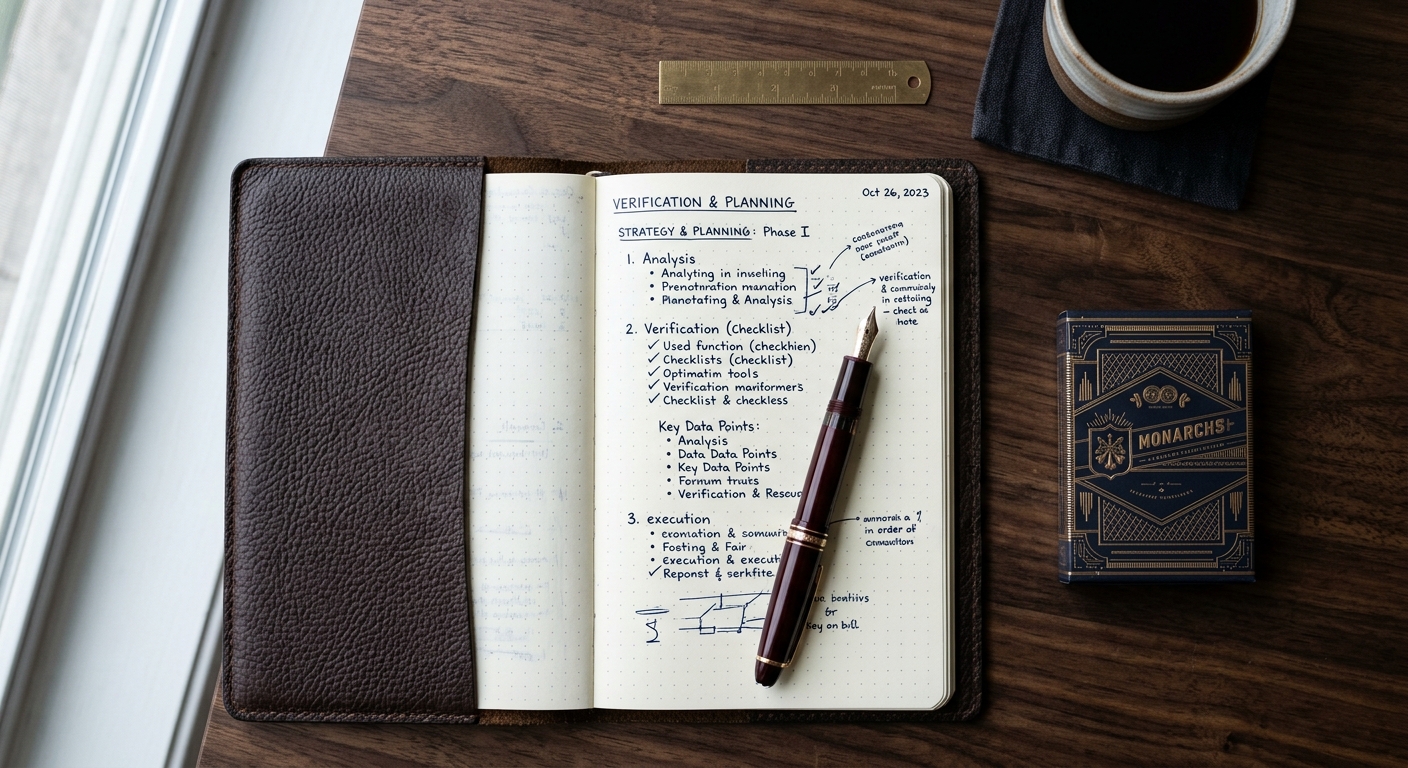 Oct 26, 2023
VERIFICATION & PLANNING
STRATEGY & PLANNING: Phase I
1. Analysis
• Analyting in inveling
• Prenotnration manation
• Planotafing & Analysis
verification
& commuialy
in cettoling
– check as
note
2. Verification (Checklist)
✓ Used function (checkhien)
✓ Checklists (Checklist)
✓ Optimatim tools
✓ Verification mariformers
✓ Checklist & checkless
Key Data Points:
• Analysis
• Data Data Points
• Key Data Points
• Fornum truts
• Verification & Rescu
3. execution
• & 
• Fosting & Fair
• Execution & executi
✓ Reponst & serkfite
in order of
bontivs
for
key on bill
MONARCHS